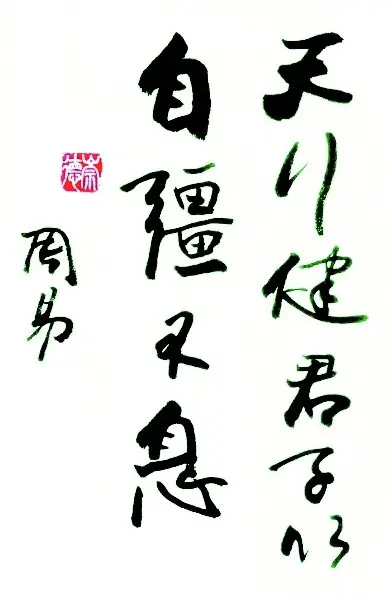 天行健君子以
自彊不息
周易
崇德